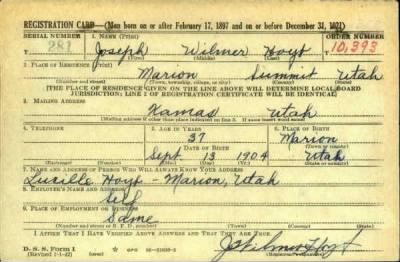 REGISTRATION CARD—(Men born on or after February 17, 1897 and on or before December 31, 1921)
SERIAL NUMBER 1. NAME (Print) ORDER NUMBER
281 Joseph Wilmer Hoyt 10,393
(First) (Middle) (Last)
2. PLACE OF RESIDENCE (Print)
Marion Summit Utah
(Number and street) (Town, township, village, or city) (County) (State)
[THE PLACE OF RESIDENCE GIVEN ON THE LINE ABOVE WILL DETERMINE LOCAL BOARD
JURISDICTION; LINE 2 OF REGISTRATION CERTIFICATE WILL BE IDENTICAL]
3. MAILING ADDRESS
Kamas Utah
[Mailing address if other than place indicated on line 2. If same insert word same]
4. TELEPHONE 5. AGE IN YEARS 6. PLACE OF BIRTH
37 Marion
DATE OF BIRTH (Town or county)
Sept 13 1904 Utah
(Exchange) (Number) (Mo.) (Day) (Yr.) (State or country)
7. NAME AND ADDRESS OF PERSON WHO WILL ALWAYS KNOW YOUR ADDRESS
Lucille Hoyt – Marion, Utah
8. EMPLOYER'S NAME AND ADDRESS
Self
9. PLACE OF EMPLOYMENT OR BUSINESS
Same
(Number and street or R. F. D. number) (Town) (County) (State)
I AFFIRM THAT I HAVE VERIFIED ABOVE ANSWERS AND THAT THEY ARE TRUE.
D. S. S. Form 1
(Revised 1-1-42) GPO J Wilmer Hoyt